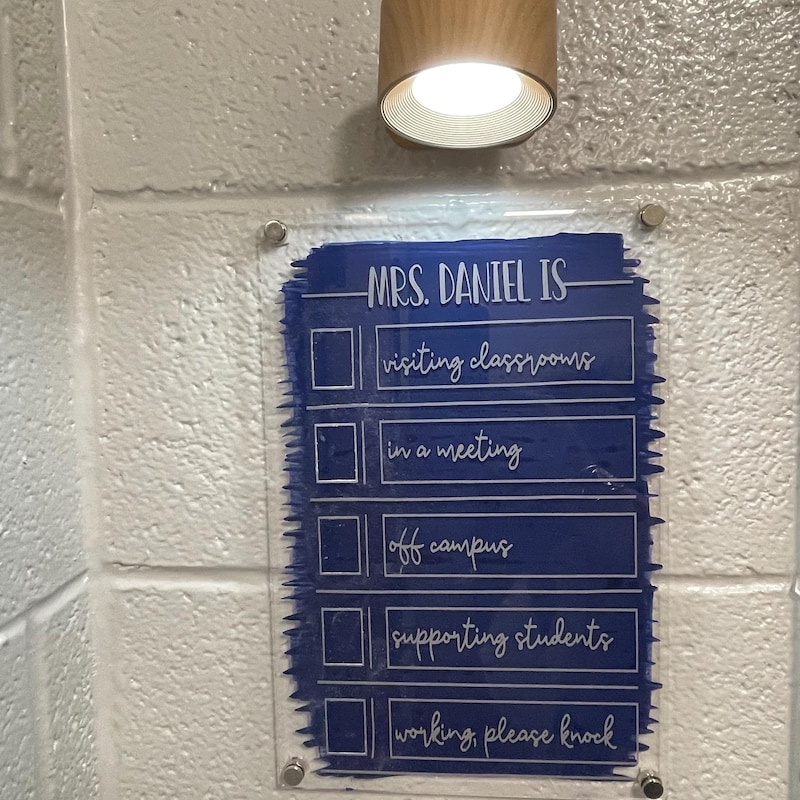 MRS. DANIEL IS
visiting classrooms
in a meeting
off campus
supporting students
working, please knock